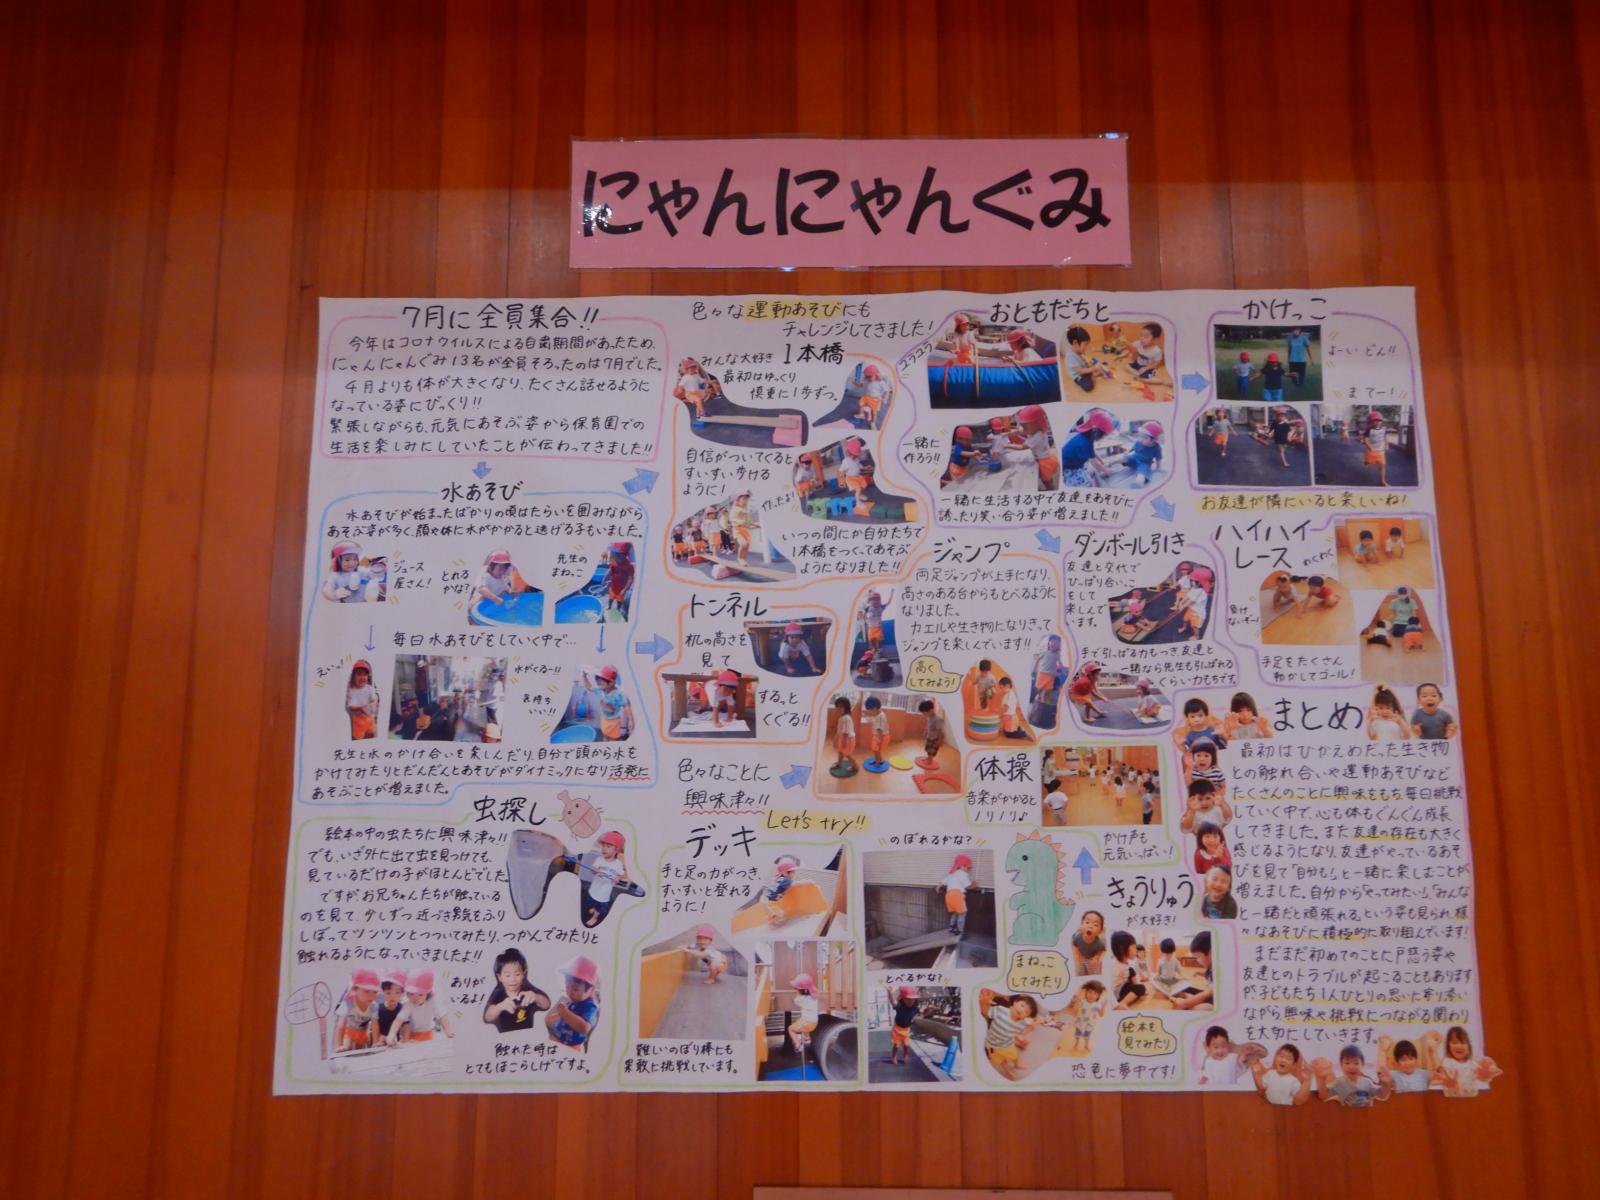 にゃんにゃんぐみ
7月に全員集合!!
今年はコロナウイルスによる自粛期間があったため、
にゃんにゃんぐみ13名が全員そろったのは7月でした。
4月よりも体が大きくなり、たくさん話せるように
なっている姿にびっくり!!
緊張しながらも、元気にあそぶ姿から保育園での
生活を楽しみにしていたことが伝わってきました!!
水あそび
水あそびが始まったばかりの頃はたらいを囲みながら
あそぶ姿が多く、顔や体に水がかかると逃げる子もいました。
ジュース
屋さん!
とれる
かな?
先生の
まねっこ
毎日水あそびをしていく中で…
えいっ!
水がくるー!!
気持ち
いい!!
先生と水のかけ合いを楽しんだり、自分で頭から水を
かけてみたりとだんだんとあそびがダイナミックになり活発に
あそぶことが増えました。
虫探し
絵本の中の虫たちに興味津々!!
でも、いざ外に出て虫を見つけても、
見ているだけの子がほとんどでした。
ですが、お兄ちゃんたちが触っている
のを見て、少しずつ近づき勇気をふり
しぼってツンツンとつついてみたり、つかんでみたりと
触れるようになっていきましたよ!!
ありが
いるよ!
触れた時は
とてもほこらしげですよ。
色々な運動あそびにも
チャレンジしてきました!
みんな大好き 1本橋
最初はゆっくり
慎重に1歩ずつ。
自信がついてくると
すいすい歩ける
ように!
作ったよ!
いつの間にか自分たちで
1本橋をつくってあそぶ
ようになりました!!
トンネル
机の高さを
見て
するっと
くぐる!!
色々なことに
興味津々!!
Let's try!!
デッキ
手と足の力がつき、
すいすいと登れる
ように!
難しいのぼり棒にも
果敢に挑戦しています。
のぼれるかな?
とべるかな?
おともだちと
ユラユラ
一緒に
作ろう!!
一緒に生活する中で友達をあそびに
誘ったり笑い合う姿が増えました!!
ジャンプ
両足ジャンプが上手になり、
高さのある台からもとべるように
なりました。
カエルや生き物になりきって
ジャンプを楽しんでいます!!
高く
してみよう!
ダンボール引き
友達と交代で
ひっぱり合いっこ
をして
楽しんで
います。
手で引っぱる力もつき友達と
一緒なら先生も引っぱれる
くらい力もちです。
体操
音楽がかかると
ノリノリ♪
かけ声も
元気いっぱい!
きょうりゅう
が大好き!
まねっこ
してみたり
絵本を
見てみたり
恐竜に夢中です!
かけっこ
よーい どん!!
まてー!
お友達が隣にいると楽しいね!
ハイハイ
レース
わくわく
負け
ないぞー!
手足をたくさん
動かしてゴール!
まとめ
最初はひかえめだった生き物
との触れ合いや運動あそびなど
たくさんのことに興味をもち、毎日挑戦
していく中で、心も体もぐんぐん成長
してきました。また友達の存在も大きく
感じるようになり、友達がやっているあそ
びを見て「自分も!」と一緒に楽しむことが
増えました。自分から「やってみたい」「みんな
と一緒だと頑張れる」という姿も見られ、様
々なあそびに積極的に取り組んでいます!
まだまだ初めてのことに戸惑う姿や
友達とのトラブルが起こることもあります
が、子どもたち1人ひとりの思いに寄り添い
ながら、興味や挑戦につながる関わり
を大切にしていきます。